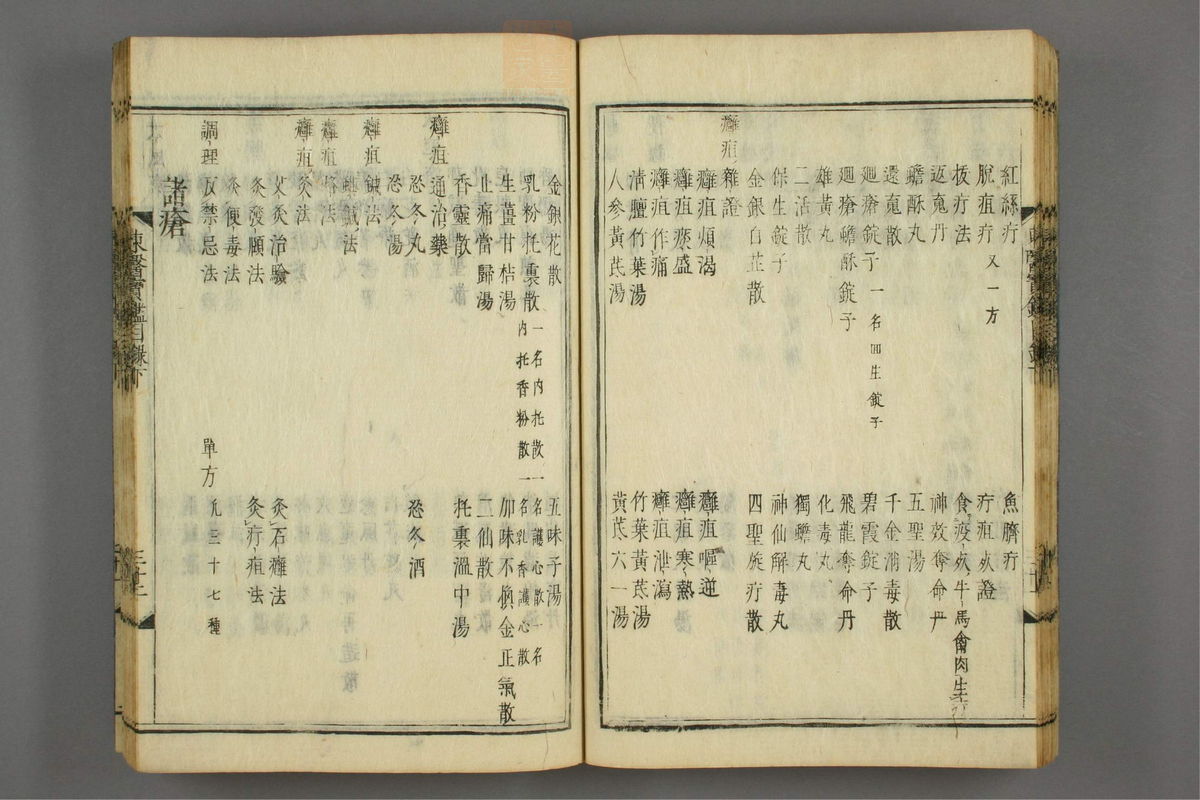 紅絲疔 魚臍疔
脫疽疔 又一方 疔疽灸證
拔疔法 食疫死牛馬禽肉生疔
返䰟丹 神效奪命丹
蟾酥丸 五聖湯
還䰟散 千金消毒散
廻瘡錠子 一名回生錠子 碧霞錠子
廻瘡蟾酥錠子 飛龍奪命丹
雄黃丸 化毒丸
二活散 獨蟾丸
保生錠子 神仙解毒丸
金銀白芷散 四聖旋疔散
癰疽雜證
癰疽煩渴 癰疽嘔逆
癰疽痰盛 癰疽寒熱
癰疽作痛 癰疽泄瀉
淸膻竹葉湯 竹葉黃芪湯
人參黃芪湯 黃芪六一湯
金銀花散 五味子湯
乳粉托裏散 一名內托散一名護心散一名
內托香粉散一名乳香護心散
生薑甘桔湯 加味不換金正氣散
止痛當歸湯 二仙散
香靈散 托裏溫中湯
癰疽通治藥
忍冬丸 忍冬酒
忍冬湯
癰疽鍼法
蜞鍼法
癰疽烙法
癰疽灸法
艾灸治驗 灸石癰法
灸發頤法 灸疔疽法
灸便毒法
調理及禁忌法 單方 凡三十七種
諸瘡
東醫寶鑑目錄下
東醫寶鑑目錄下